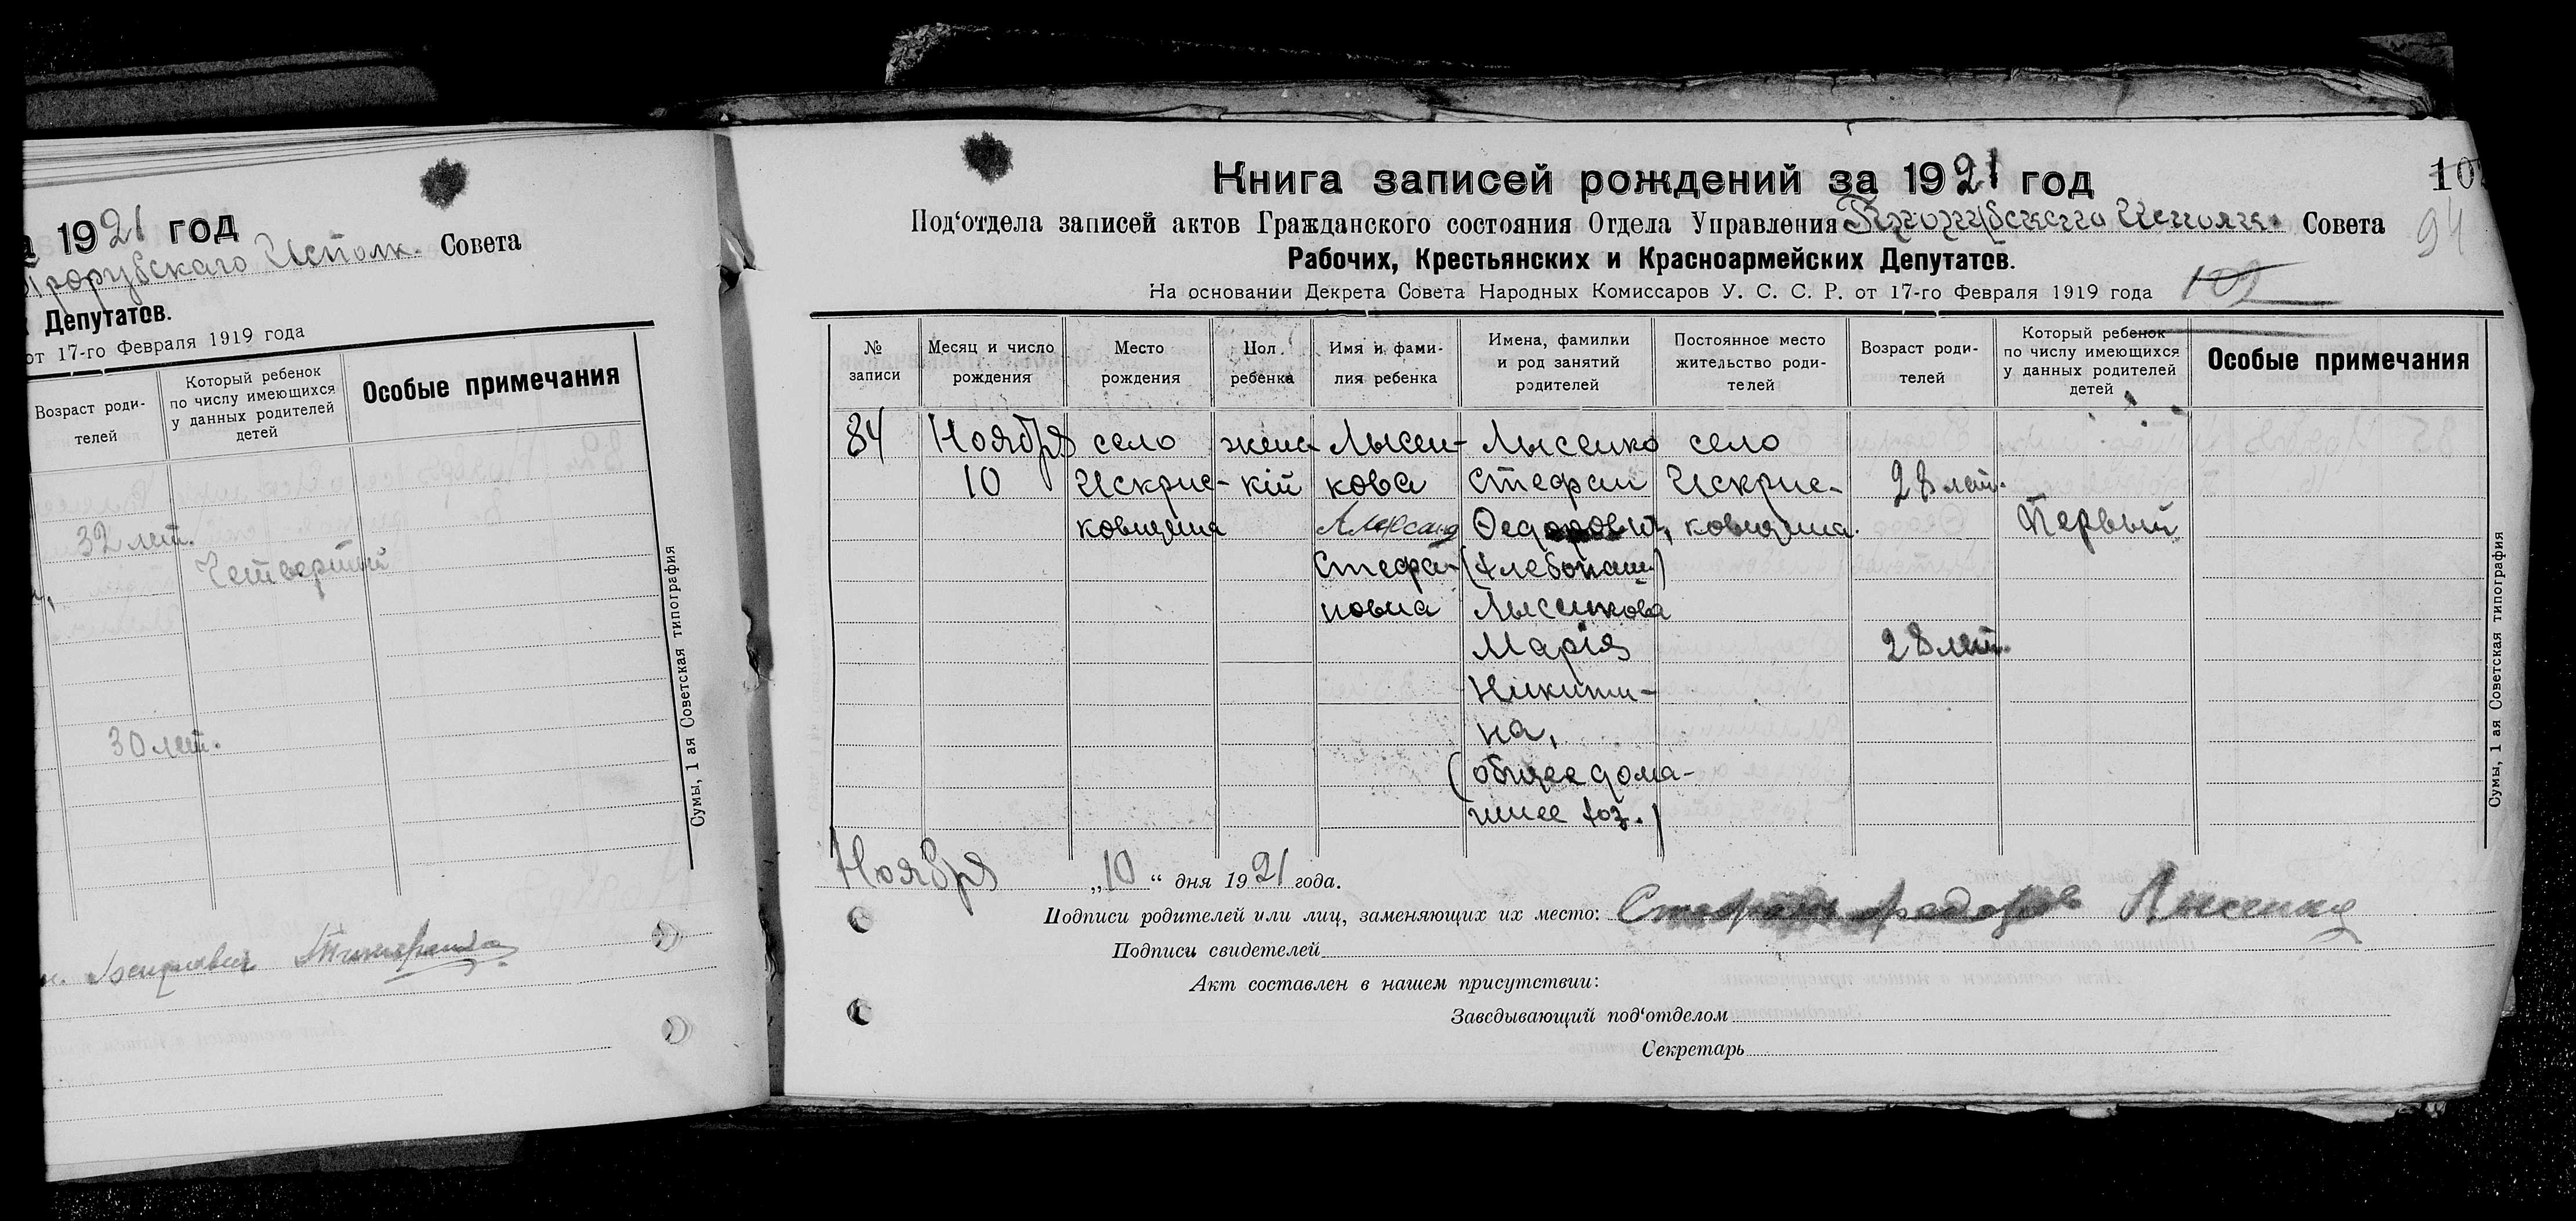 1921 год
Прорубскаго Исполк. Совета
Депутатов.
от 17-го Февраля 1919 года
Возраст роди-
телей
Который ребенок
по числу имеющихся
у данных родителей
детей
Особые примечания
32 лет.
Четвертый
30 лет.
Сумы, 1 ая Советская типография
Книга записей рождений за 1921 год
10
Под‘отдела записей актов Гражданского состояния Отдела Управления Прорубского Исполк. Совета
94
Рабочих, Крестьянских и Красноармейских Депутатов.
На основании Декрета Совета Народных Комиссаров У. С. С. Р. от 17-го Февраля 1919 года
102
№
записи
Месяц и число
рождения
Место
рождения
Пол
ребенка
Имя и фами-
лия ребенка
Имена, фамилии
и род занятий
родителей
Постоянное место
жительство роди-
телей
Возраст роди-
телей
Который ребенок
по числу имеющихся
у данных родителей
детей
Особые примечания
84
Ноября
10
село
Искрис-
ковщина
женс-
кій
Лысен-
кова
Александ
Стефа-
новна
Лысенко
Стефан
Федорович,
(хлебопаш.)
Лысенкова
Марія
Никити-
на,
(общее дома-
шнее хоз.)
село
Искрис-
ковщина.
28 лет.
28 лет.
Первый
Сумы, 1 ая Советская типография
Ноября „10“ дня 1921 года.
Подписи родителей или лиц, заменяющих их место: Стефан Федоров Лисенко
Подписи свидетелей
Акт составлен в нашем присутствии:
Заведывающий под‘отделом
Секретарь